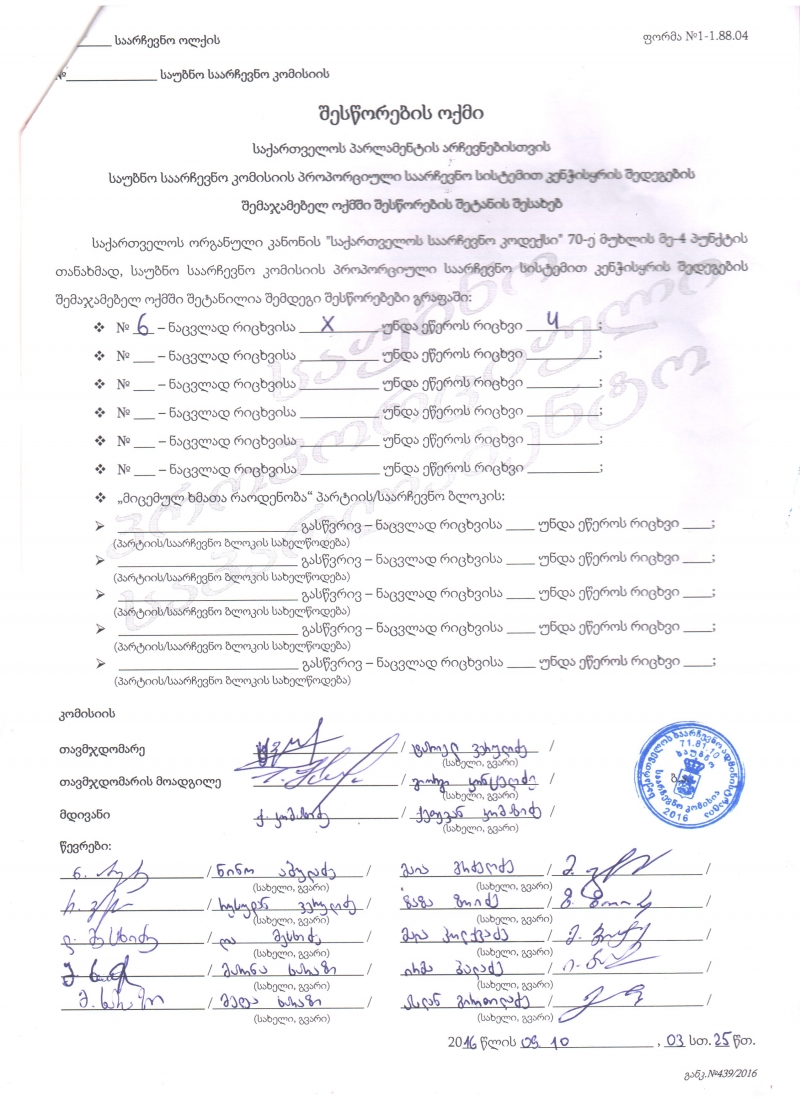 ______ საარჩევნო ოლქის
ფორმა №1-1.88.04
№______________ საუბნო საარჩევნო კომისიის
შესწორების ოქმი
საქართველოს პარლამენტის არჩევნებისთვის
საუბნო საარჩევნო კომისიის პროპორციული საარჩევნო სისტემით კენჭისყრის შედეგების
შემაჯამებელ ოქმში შესწორების შეტანის შესახებ
საქართველოს ორგანული კანონის "საქართველოს საარჩევნო კოდექსი" 70-ე მუხლის მე-4 პუნქტის
თანახმად, საუბნო საარჩევნო კომისიის პროპორციული საარჩევნო სისტემით კენჭისყრის შედეგების
შემაჯამებელ ოქმში შეტანილია შემდეგი შესწორებები გრაფაში:
❖ № 6 – ნაცვლად რიცხვისა X უნდა ეწეროს რიცხვი 4;
❖ № ___ – ნაცვლად რიცხვისა ___________ უნდა ეწეროს რიცხვი __________;
❖ № ___ – ნაცვლად რიცხვისა ___________ უნდა ეწეროს რიცხვი __________;
❖ № ___ – ნაცვლად რიცხვისა ___________ უნდა ეწეროს რიცხვი __________;
❖ № ___ – ნაცვლად რიცხვისა ___________ უნდა ეწეროს რიცხვი __________;
❖ № ___ – ნაცვლად რიცხვისა ___________ უნდა ეწეროს რიცხვი __________;
❖ „მიცემულ ხმათა რაოდენობა“ პარტიის/საარჩევნო ბლოკის:
➢ _________________________ გასწვრივ – ნაცვლად რიცხვისა ____ უნდა ეწეროს რიცხვი ____;
(პარტიის/საარჩევნო ბლოკის სახელწოდება)
➢ _________________________ გასწვრივ – ნაცვლად რიცხვისა ____ უნდა ეწეროს რიცხვი ____;
(პარტიის/საარჩევნო ბლოკის სახელწოდება)
➢ _________________________ გასწვრივ – ნაცვლად რიცხვისა ____ უნდა ეწეროს რიცხვი ____;
(პარტიის/საარჩევნო ბლოკის სახელწოდება)
➢ _________________________ გასწვრივ – ნაცვლად რიცხვისა ____ უნდა ეწეროს რიცხვი ____;
(პარტიის/საარჩევნო ბლოკის სახელწოდება)
➢ _________________________ გასწვრივ – ნაცვლად რიცხვისა ____ უნდა ეწეროს რიცხვი ____;
(პარტიის/საარჩევნო ბლოკის სახელწოდება)
კომისიის
თავმჯდომარე / /
(სახელი, გვარი)
თავმჯდომარის მოადგილე / /
(სახელი, გვარი)
მდივანი / ქეთევან /
(სახელი, გვარი)
წევრები:
/ ნინო / მაია /
(სახელი, გვარი) (სახელი, გვარი)
/ რუსუდან / ზაზა /
(სახელი, გვარი) (სახელი, გვარი)
/ ლია მესხიძე / მაია /
(სახელი, გვარი) (სახელი, გვარი)
/ ირმა /
(სახელი, გვარი) (სახელი, გვარი)
/ /
(სახელი, გვარი) (სახელი, გვარი)
71.81.10
საუბნო
საარჩევნო კომისია
2016
2016 წლის 09 10, 03 სთ. 25 წთ.
განკ.№439/2016